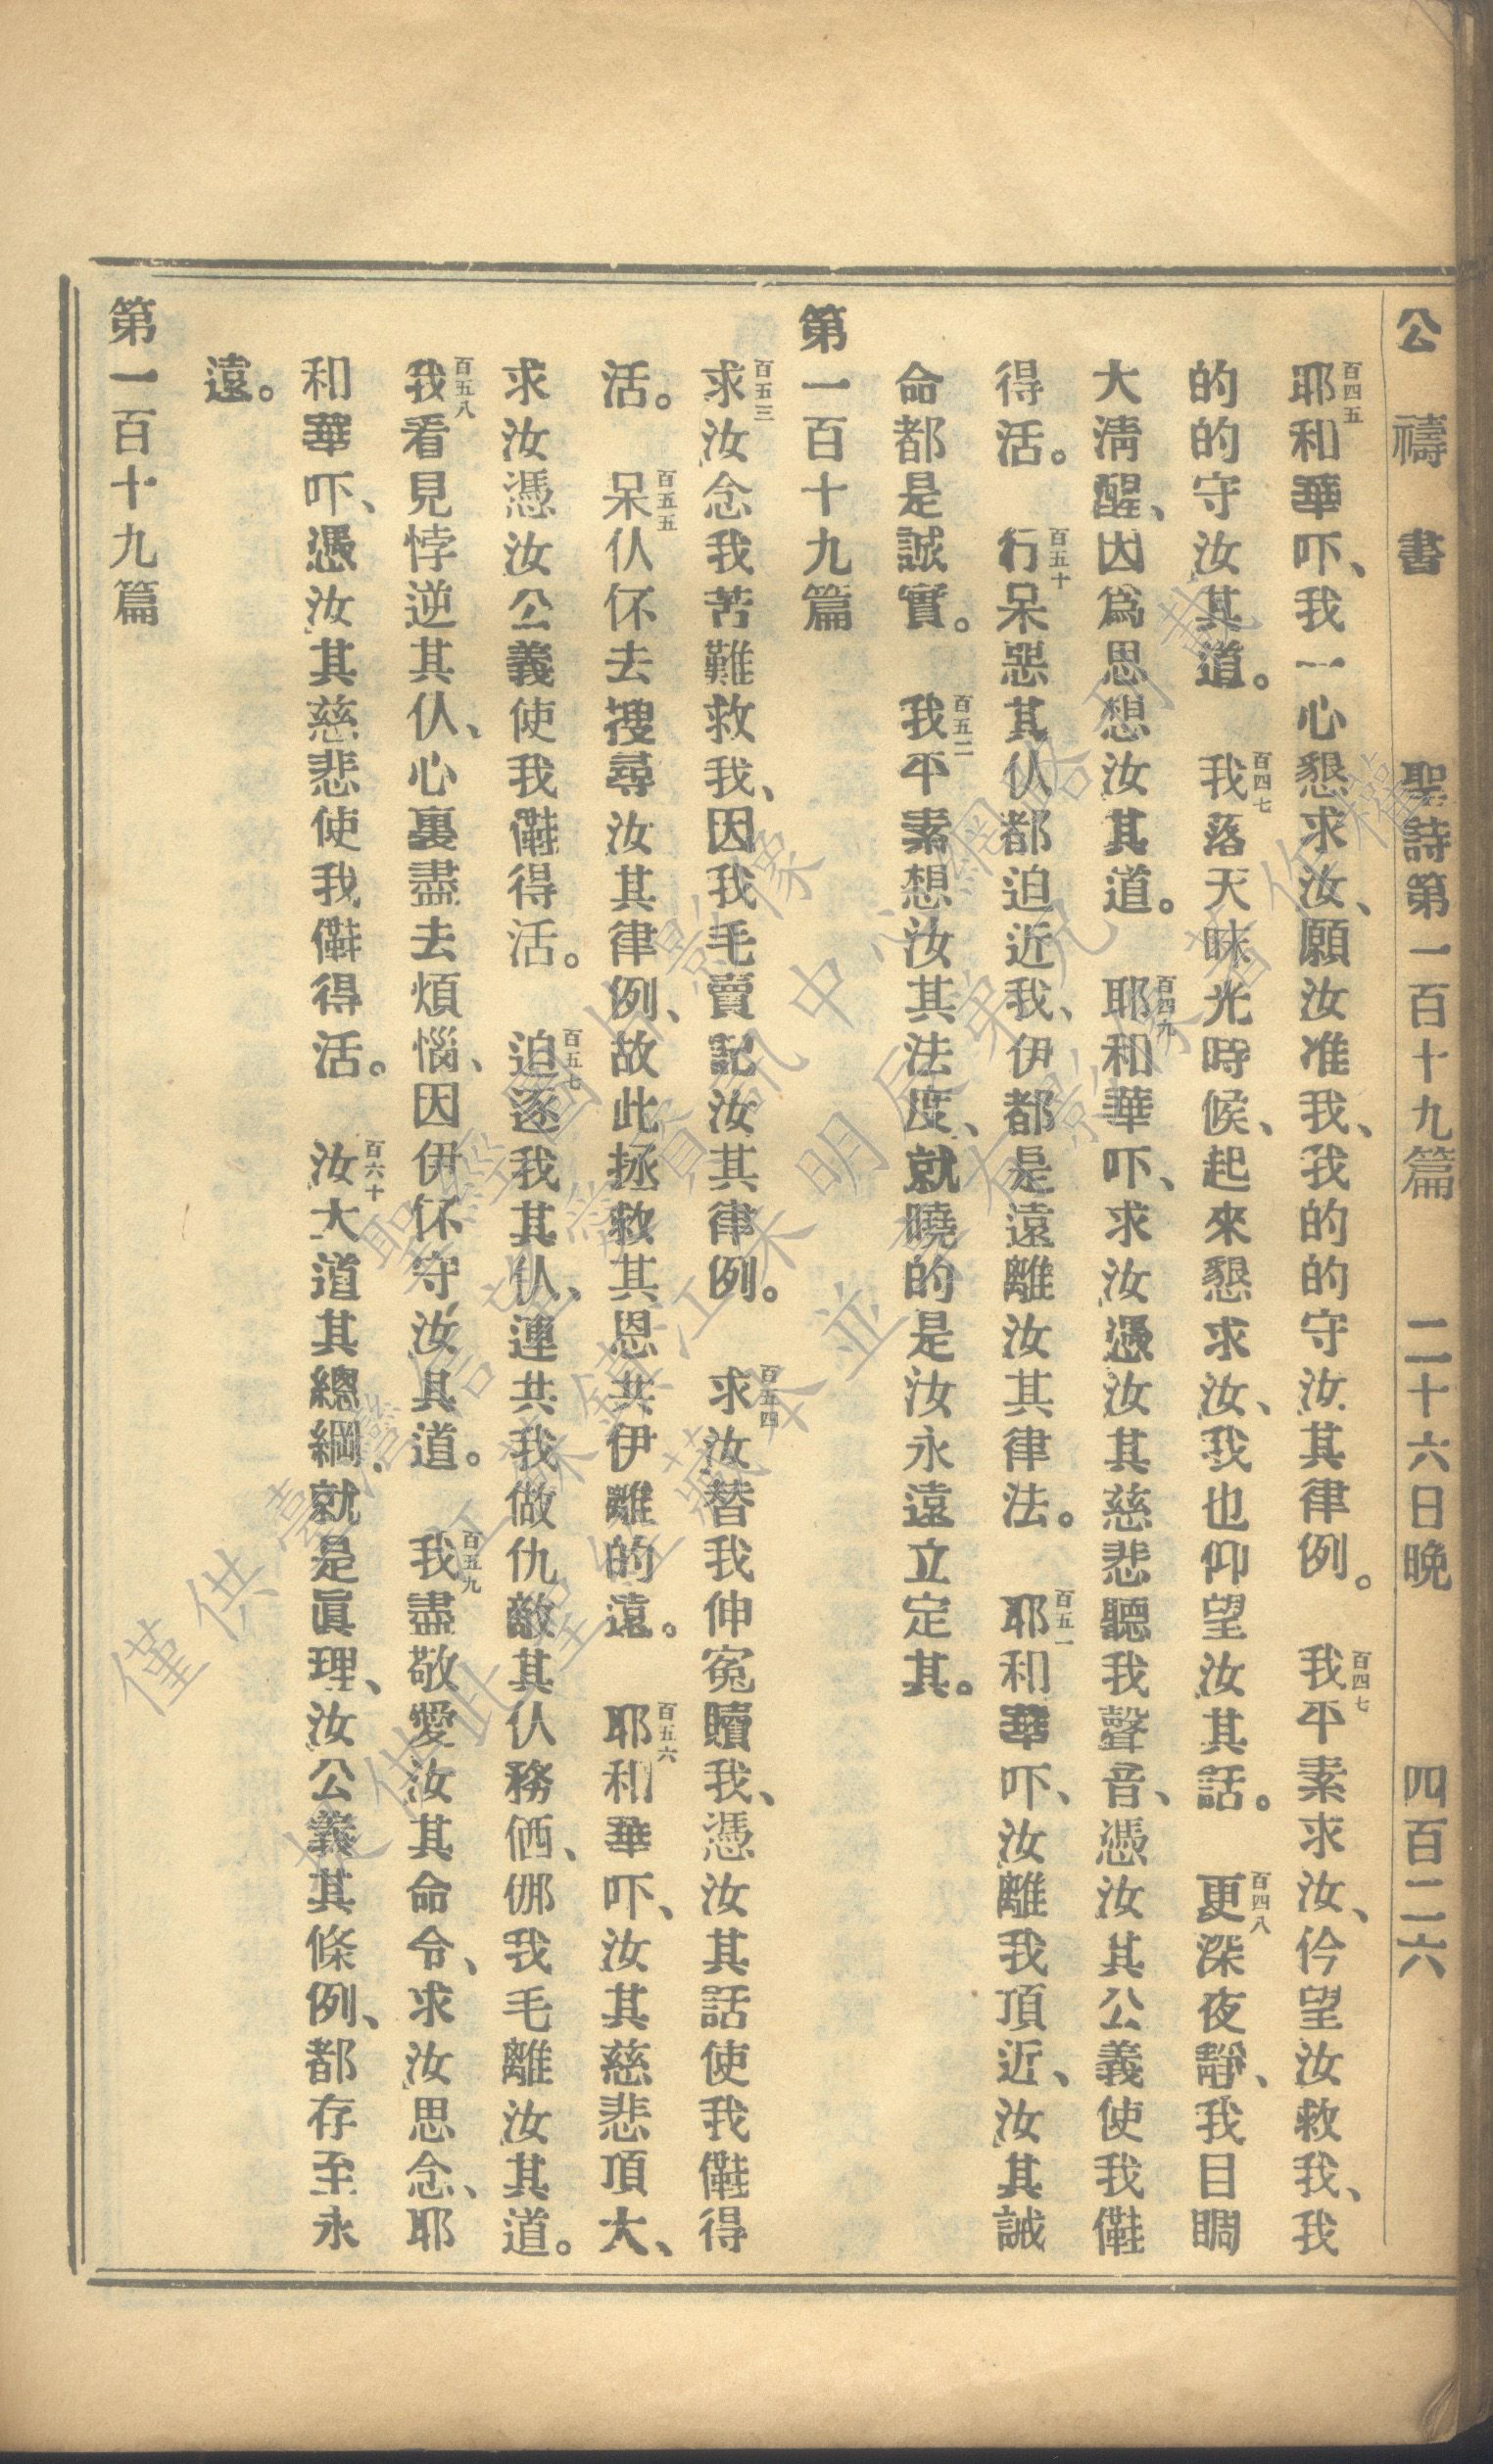 公禱書 聖詩第一百十九篇 二十六日晚 四百二六
百四五耶和華吓、我一心懇求汝、願汝准我、我的的守汝其律例。 百四七我平素求汝、仱望汝救我、我
的的守汝其道。 百四七我落天昧光時候、起來懇求汝、我也仰望汝其話。 百四八更深夜靜、我目睭
大清醒、因爲思想汝其道。 百四九耶和華吓、求汝憑汝其慈悲聽我聲音、憑汝其公義使我㒰
得活。 百五十行呆惡其仈都迫近我、伊都是遠離汝其律法。 百五一耶和華吓、汝離我頂近、汝其誡
命都是誠實。 百五二我平素想汝其法度、就曉的是汝永遠立定其。
第一百十九篇
百五三求汝念我苦難救我、因我毛賣記汝其律例。 百五四求汝替我伸冤贖我、憑汝其話使我㒰得
活。 百五五呆仈伓去搜尋汝其律例、故此拯救其恩共伊離的遠。 百五六耶和華吓、汝其慈悲頂大、
求汝憑汝公義使我㒰得活。 百五七迫逐我其仈、連共我做仇敵其仈務㑚、㑚我毛離汝其道。
百五八我看見悖逆其仈、心裏盡去煩惱、因伊伓守汝其道。 百五九我盡敬愛汝其命令、求汝思念、耶
和華吓、憑汝其慈悲使我㒰得活。 百六十汝大道其總綱、就是眞理、汝公義其條例、都存至永
遠。
第一百十九篇